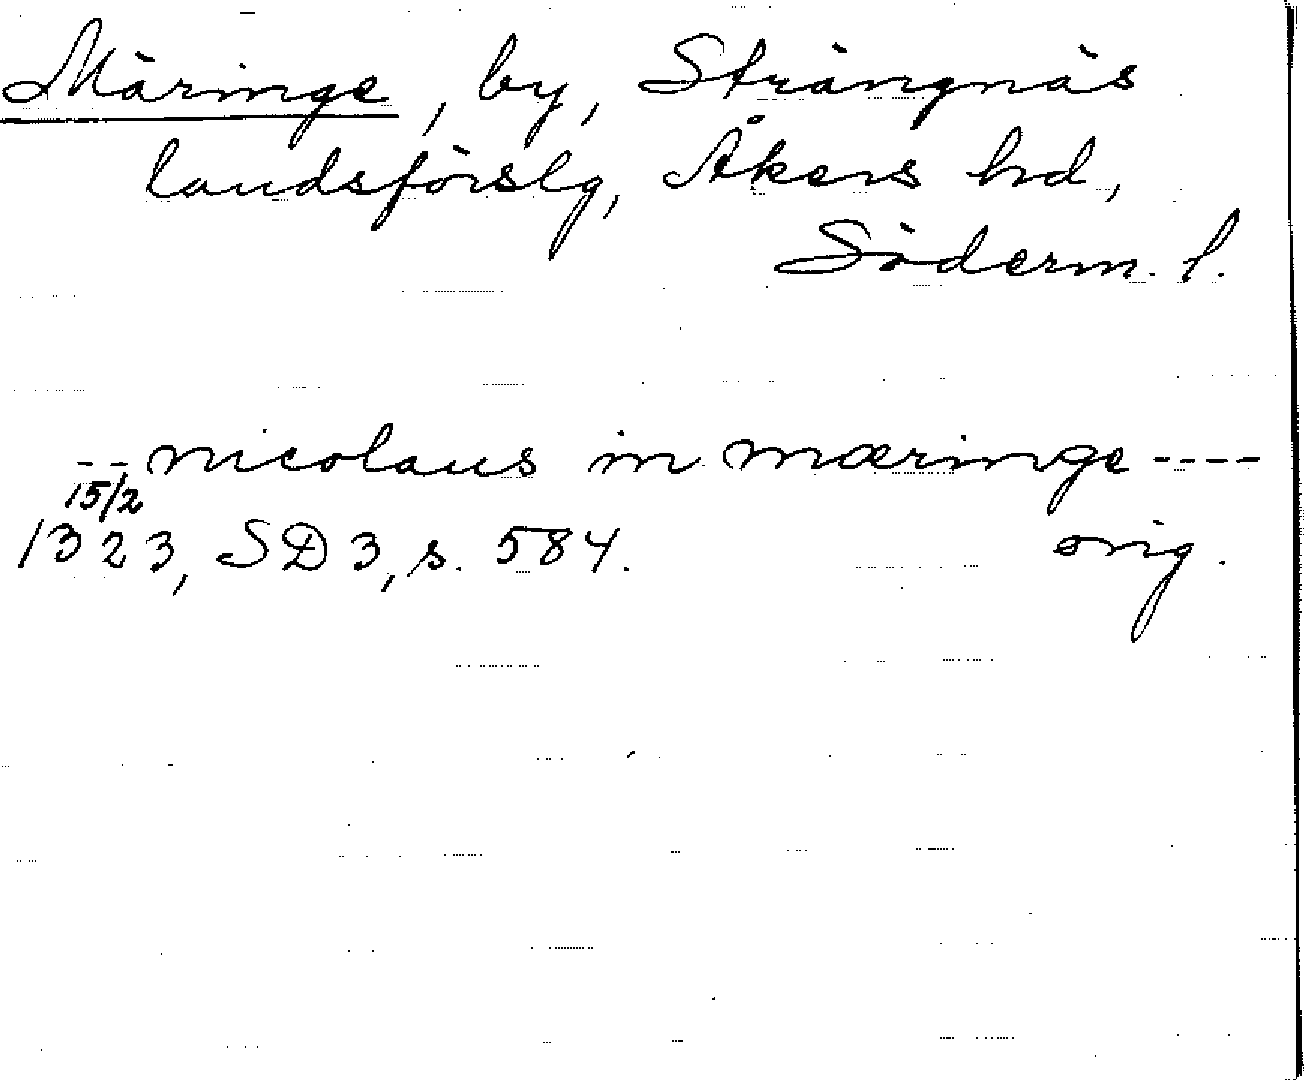 Märinge, by, Strängnäs
landsförslg, Åkers hd,
Söderm. l.
-- nicolaus in mæringe ----
15/2
1323, SD 3, s. 584. orig.